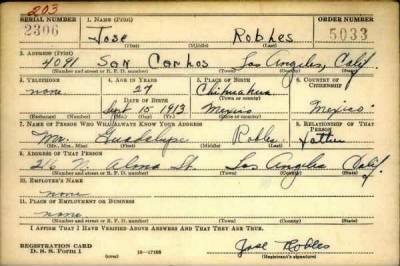 203
SERIAL NUMBER 1. NAME (Print) ORDER NUMBER
2306 Jose Robles 5033
(First) (Middle) (Last)
2. ADDRESS (Print)
4091 San Carlos Los Angeles, Calif.
(Number and street or R. F. D. number) (Town) (County) (State)
3. TELEPHONE 4. AGE IN YEARS 5. PLACE OF BIRTH 6. COUNTRY OF CITIZENSHIP
none 27 Chihuahua
DATE OF BIRTH (Town or county)
Sept 15 1913 Mexico Mexico
(Exchange) (Number) (Mo.) (Day) (Yr.) (State or country)
7. NAME OF PERSON WHO WILL ALWAYS KNOW YOUR ADDRESS 8. RELATIONSHIP OF THAT PERSON
Mr. Guadalupe Robles Father
(Mr., Mrs., Miss) (First) (Middle) (Last)
9. ADDRESS OF THAT PERSON
St. Los Angeles Calif.
(Number and street or R. F. D. number) (Town) (County) (State)
10. EMPLOYER'S NAME
none
11. PLACE OF EMPLOYMENT OR BUSINESS
none
(Number and street or R. F. D. number) (Town) (County) (State)
I AFFIRM THAT I HAVE VERIFIED ABOVE ANSWERS AND THAT THEY ARE TRUE.
REGISTRATION CARD Jose Robles
D. S. S. Form 1 16—17105 (Registrant's signature)